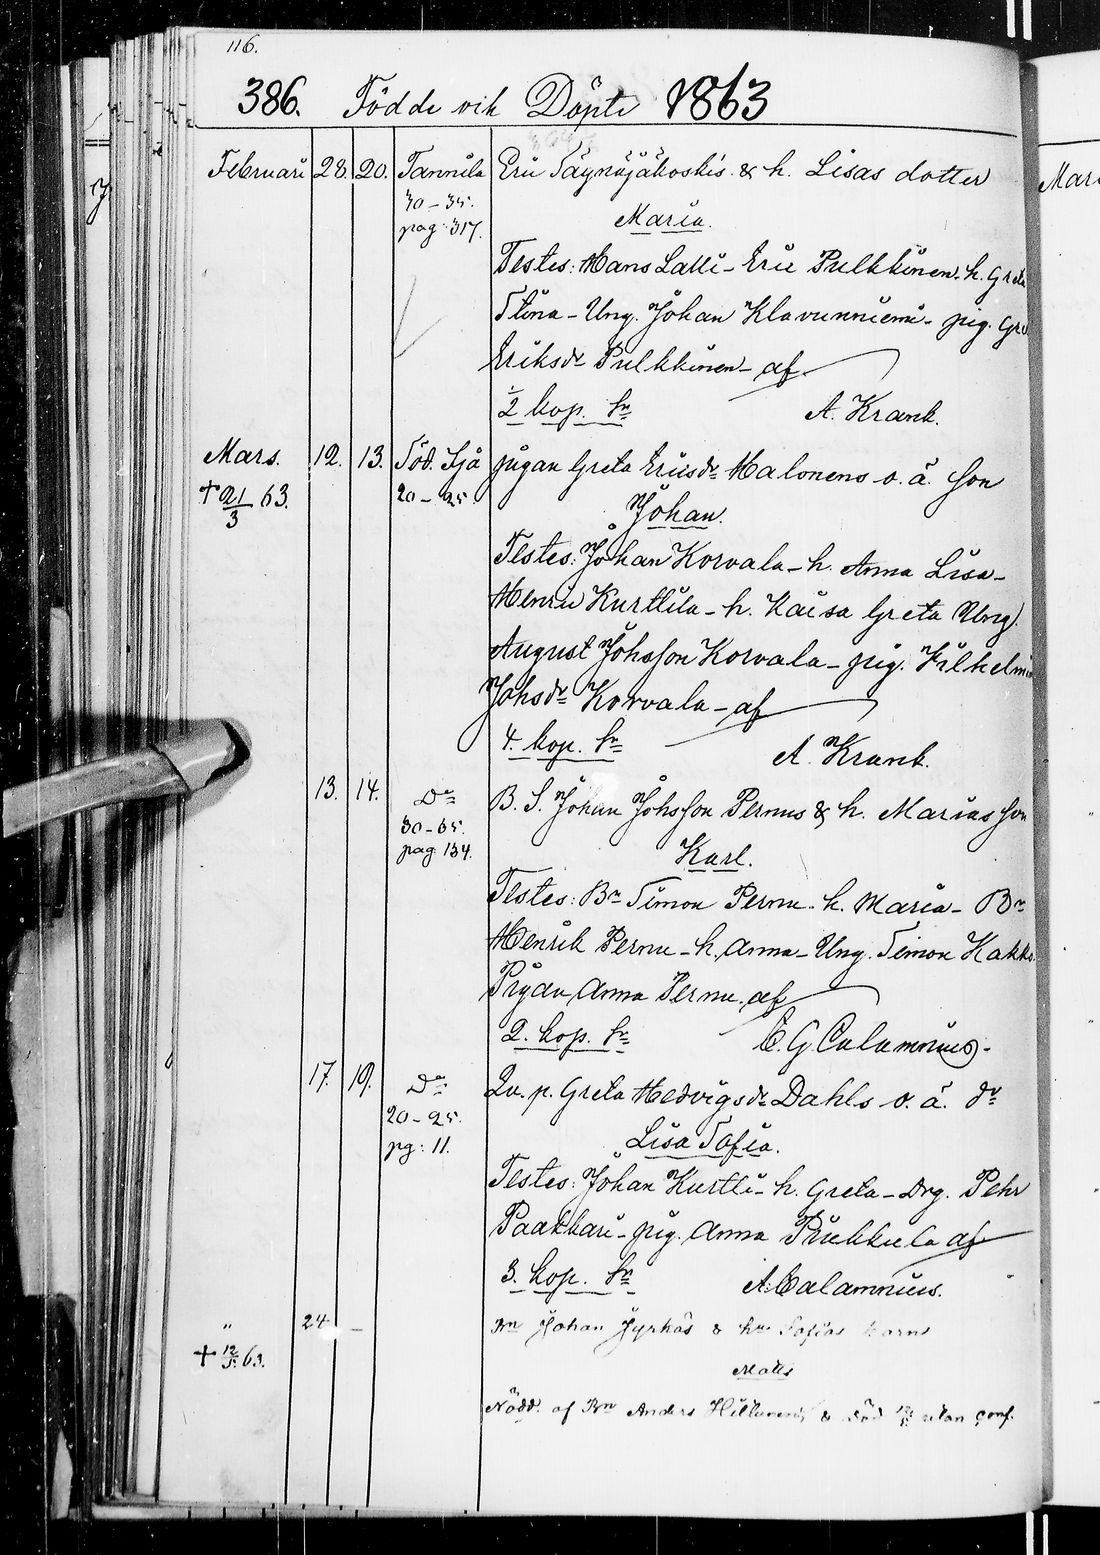 116.
386. Födde och Döpte 1863
Februari 28. 20. Tannila Eric Säynäjäkoskis & h. Lisas dotter
30-35.
pag: 317. Maria.
Testes: Hans Lalli - Eric Pulkkinen - h. Greta
Stina - Ung. Johan Klavunniemi - pig. Gre
Eriksdr Pulkkinen - af
2 kop. Sr A. Krank.
Mars. 12. 13. Söd. Ijå pigan Greta Ericsdr Halonens o. ä. son
† 21/3 63. 20-25. Johan.
Testes: Johan Korvala - h. Anna Lisa -
Henric Kurttila - h. Kaisa Greta Ung.
August Johsson Korvala - pig. Vilhelmin
Johsdr Korvala - af
4. kop. Sr A. Krank.
13. 14. Do B. S. Johan Johsson Pernus & h. Marias son
30-35.
pag. 134. Karl.
Testes: Bn Simon Pernu - h. Maria - Bn
Henrik Pernu - h. Anna - Ung. Simon Kakko
Pigan Anna Pernu. af
2. kop. Sr C. G. Calamnius.
17. 19. Do Qv. p. Greta Hedvigsdr Dahls o. ä. dr
20-25.
pg: 11. Lisa Sofia.
Testes: Johan Kurtti - h. Greta - Drg. Pehr
Paakkari - pig. Anna Pukkila af
3. kop. Sr A. Calamnius.
" 24 — Bn Johan Jyrkäs & hu Sofias barn
† 12/5 63. Matts
Nödd. af Bn Anders Hiltunen & död 12/5 utan conf.
Mars